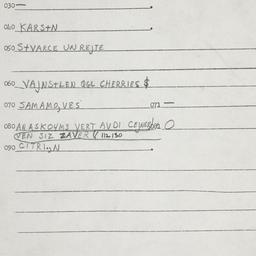 030 —
040 KARS+N
050 S+VARCE UNREJTE
060 VAJNS+LEN QGL CHERRIES $
070 SAMAMO,VES 072 —
080 ANASKOVMS VERT AVDI
VEN SIZ ZAVER 112 130
090 CITRI